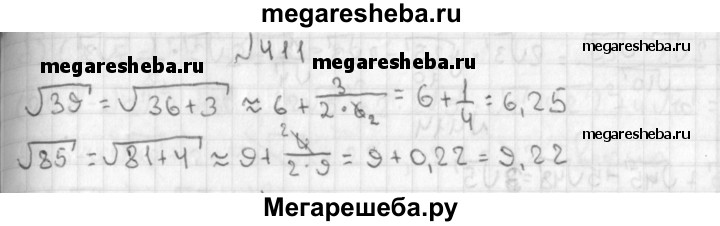 megaresheba.ru
№411
megaresheba.ru
megaresheba.ru
√39 = √36+3 ≈ 6 + 3/(2·6₂) = 6 + 1/4 = 6,25
megaresheba.ru
√85 = √81+4 ≈ 9 + ²4/(2·9) = 9 + 0,22 = 9,22
Мегарешеба.ру